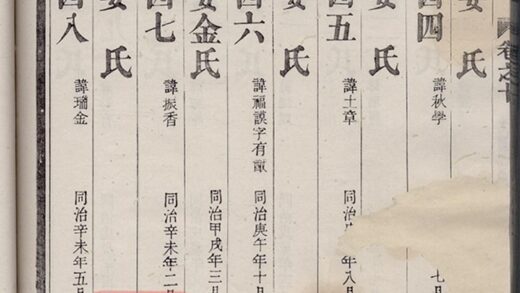 卷之十
氏
四 諱秋學 七月
氏
五 諱士章 同治 年八月
安氏
四六 諱福謨字有 同治庚午年十月
安金氏 同治甲戌年三月
四七 諱振香 同治辛未年二月
安氏
四八 諱瑞金 同治辛未年五月